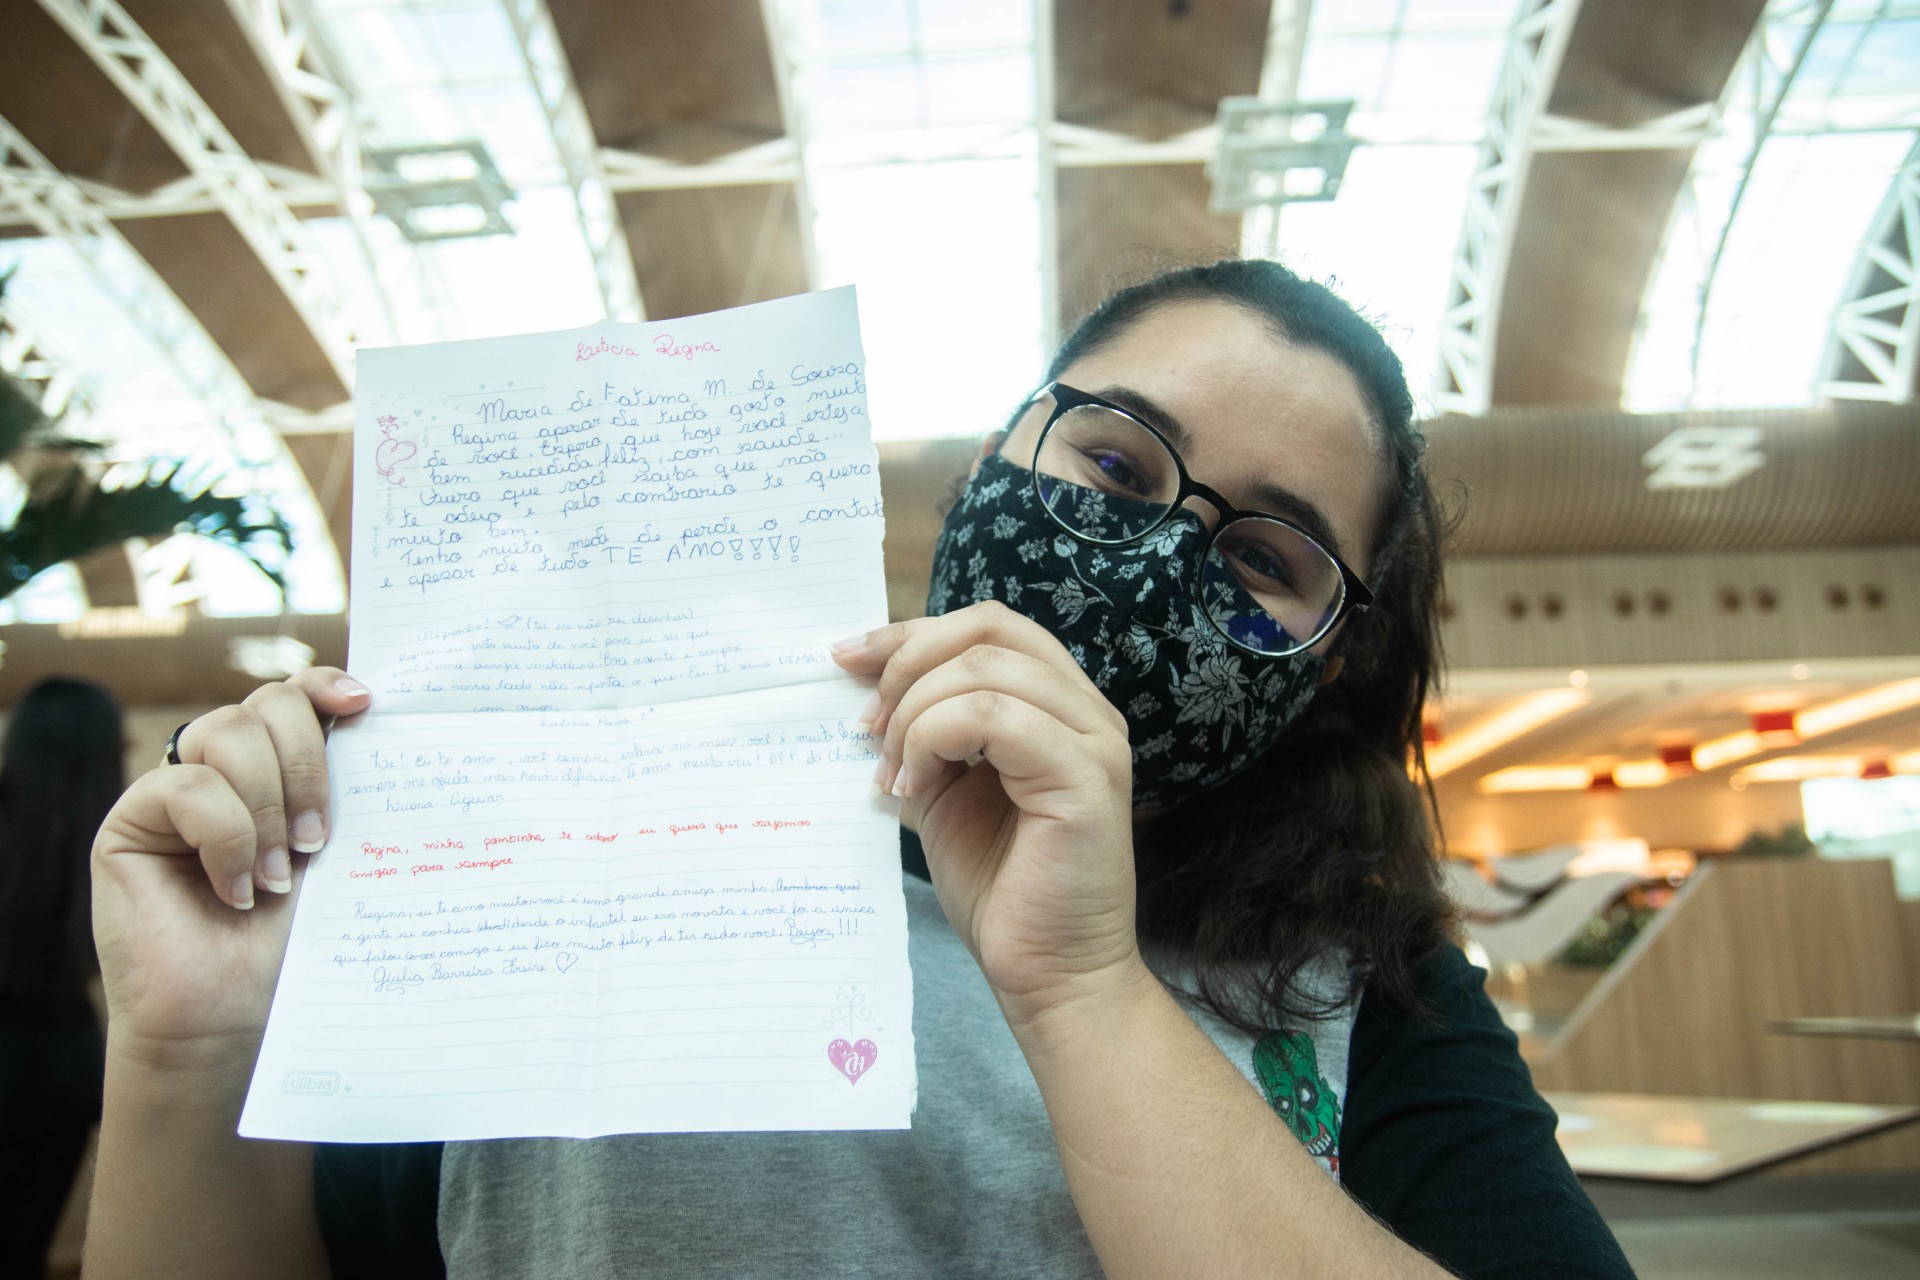 Leticia Regina
Maria de Fatima M. de Souza
Regina apesar de tudo gosto muito
de você. Espero que hoje você esteja
bem sucedida, feliz, com saude...
Quero que você saiba que não
te odeio e pelo contrario te quero
muito bem.
Tenho muito medo de perde o contat
e apesar de tudo TE AMO!!!!
(tá eu não sei desenhar)
Regina eu gosto muito de você pois eu sei que
você é uma amiga verdadeira! Boa e sempre
está do nosso lado não importa o que. Eu te amo DEMAIS
com amor,
Eu te amo, você sempre estará no meu, você é muito legal
sempre me ajuda nas horas dificeis. Te amo muito viu! BFF do
Luana Aguiar
Regina, minha pombinha te adoro eu quero que sejamos
amigas para sempre
Regina, eu te amo muito você é uma grande amiga minha, lembra que
a gente se conhece desde o infantil eu era novata e você foi a única
que falou comigo e eu fico muito feliz de ter sido você. Beijos!!!
Giulia Barreira Freire
tilibra
CH